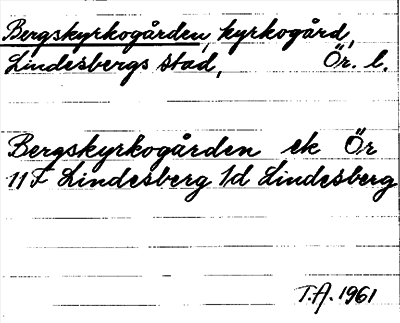 Bergskyrkogården, kyrkogård,
Lindesbergs stad, Ör. l.
Bergskyrkogården ek Ör
11F Lindesberg 1d Lindesberg
T.A. 1961